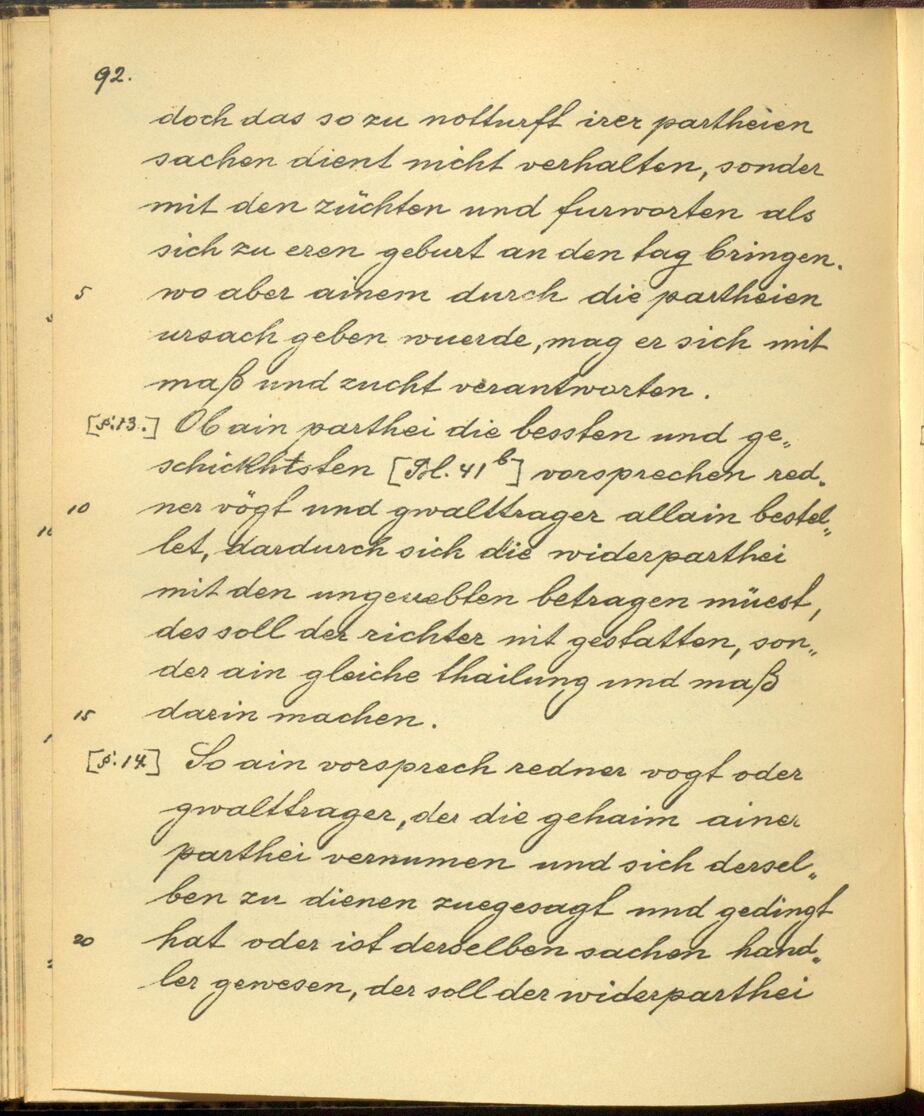 92.
doch das so zu notturft irer partheien
sachen dient nicht verhalten, sonder
mit den züchten und furworten als
sich zu eren geburt an den tag bringen.
5 wo aber ainem durch die partheien
ursach geben wuerde, mag er sich mit
maß und zucht verantworten.
[§.13.] Ob ain parthei die bessten und ge„
schickhtsten [Bl. 41b] vorsprechen red„
10 ner vögt und gwalttrager allain bestel„
let, dardurch sich die widerparthei
mit den ungeuebten betragen müest,
des soll der richter nit gestatten, son„
der ain gleiche thailung und maß
15 darin machen.
[§.14] So ain vorsprech redner vogt oder
gwalttrager, der die gehaim ainer
parthei vernumen und sich dersel„
ben zu dienen zuegesagt und gedingt
20 hat oder ist derselben sachen hand„
ler gewesen, der soll der widerparthei